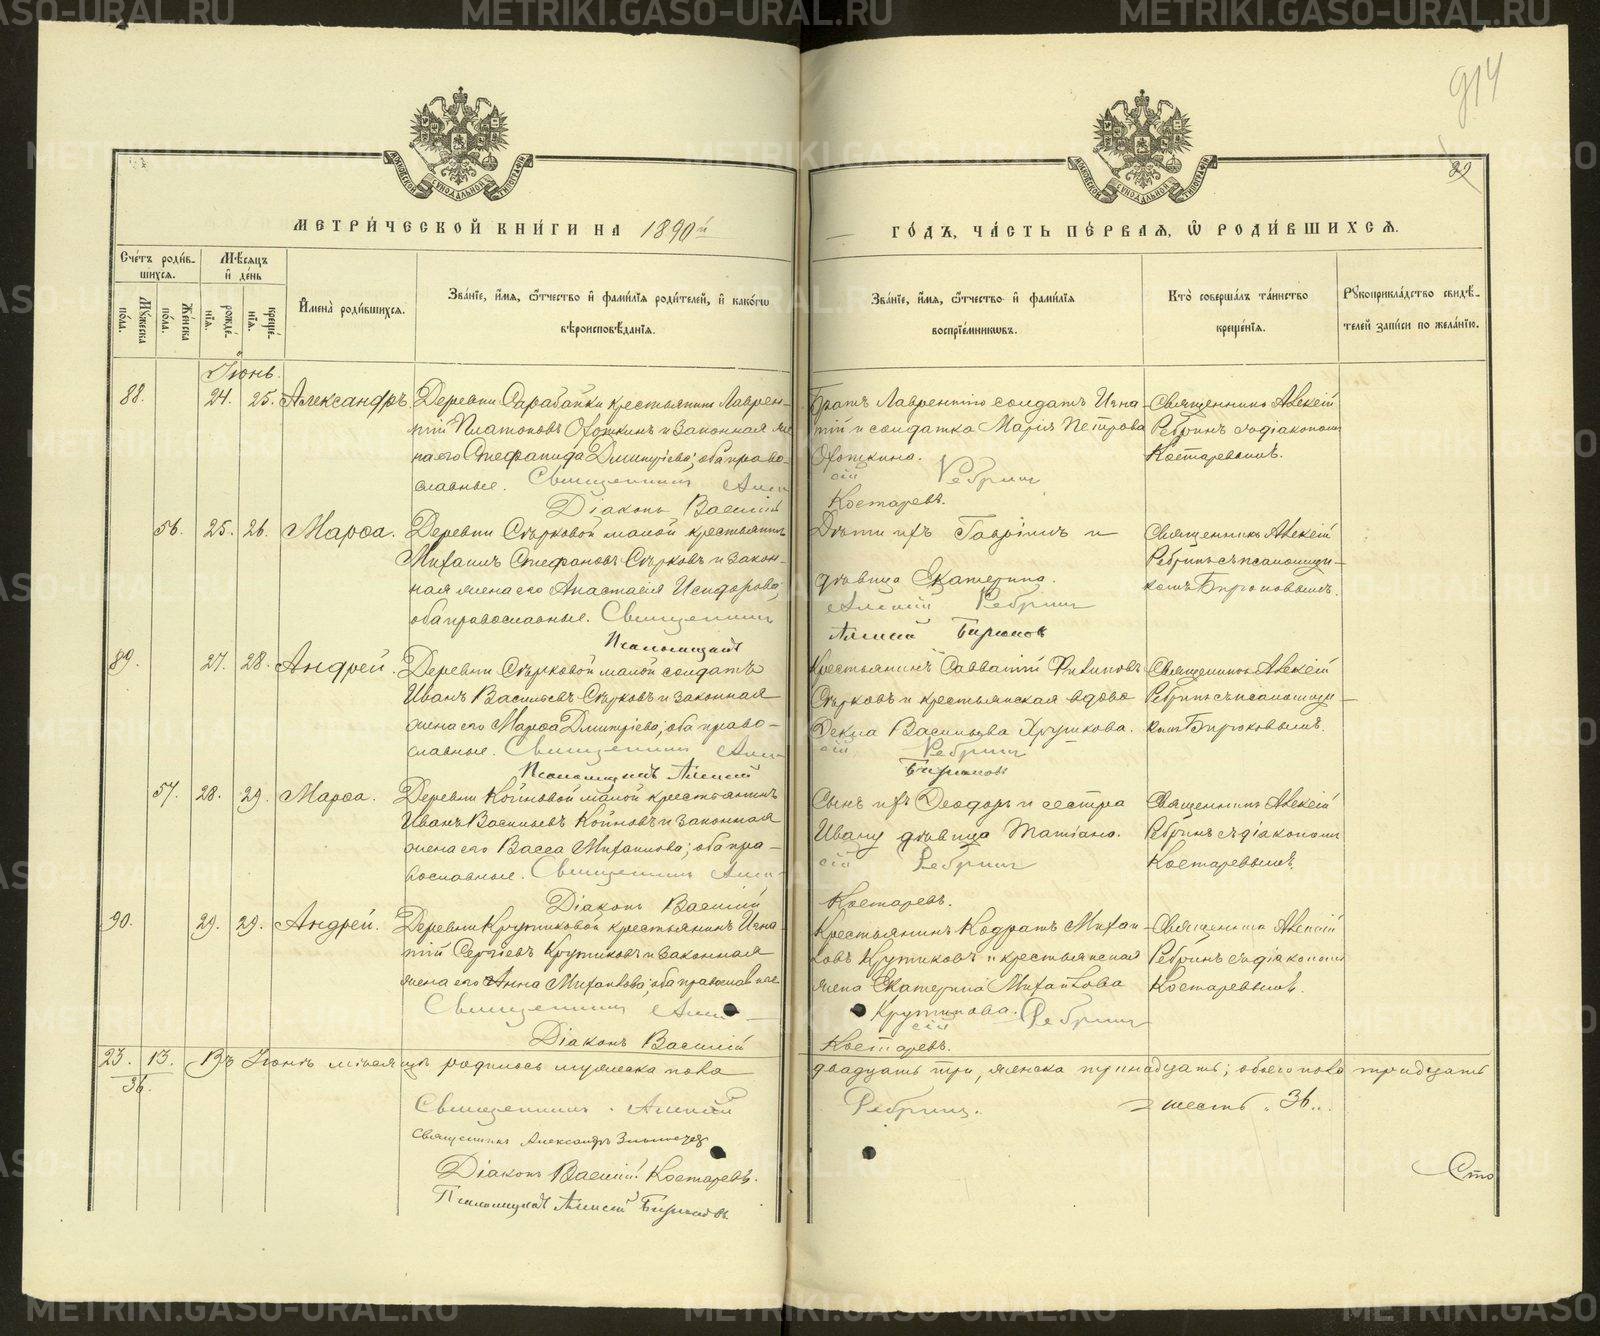 METRIKI.GASO-URAL.RU
914
МОСКОВСКОЙ СѴНОДАЛЬНОЙ ТИПОГРАФІИ
МОСКОВСКОЙ СѴНОДАЛЬНОЙ ТИПОГРАФІИ
МЕТРИ́ЧЕСКОЙ КНИ́ГИ НА 1890й
ГО́ДЪ, ЧА́СТЬ ПЕ́РВАЯ, Ѡ РОДИ́ВШИХСЯ.
Сче́тъ роди́вшихся.
Мѣ́сяцъ и҆ де́нь
Мꙋ́жеска по́ла.
Же́нска по́ла.
рожде́нїѧ.
креще́нїѧ.
И҆мена̀ роди́вшихсѧ.
Зва́нїе, и҆́мѧ, ѻ҆́тчество и҆ фамї́лїѧ роди́телей, и҆ како́гѡ вѣроисповѣ́данїѧ.
Зва́нїе, и҆́мѧ, ѻ҆́тчество и҆ фамї́лїѧ воспрїе́мникѡвъ.
Кто̀ соверша́лъ та́инство креще́нїѧ.
Рꙋкоприкла́дство свидѣ́телей за́писи по жела́нїю.
Іюнь.
88. 24. 25. Александръ.
Деревни Сарабайки крестьянинъ Лаврен-
тій Платоновъ Охоткинъ и законная же
на его Стефанида Дмитріева; оба право-
славные. Священникъ Алек
Діаконъ Василій
Братъ Лаврентію солдатъ Игна
тій и солдатка Марія Петрова
Охоткина.
сій Ребринъ
Костаревъ.
Священникъ Алексій
Ребринъ съ діакономъ
Костаревымъ.
56. 25. 26. Марѳа.
Деревни Сырковой малой крестьянинъ
Михаилъ Стефановъ Сырковъ и закон-
ная жена его Анастасія Исидорова;
оба православные. Священникъ
Псаломщикъ
Дѣти ихъ Гавріилъ и
дѣвица Екатерина.
Алексій Ребринъ
Алексій Бирюковъ
Священникъ Алексій
Ребринъ съ псаломщи-
комъ Бирюковымъ.
89. 27. 28. Андрей.
Деревни Сырковой малой солдатъ
Иванъ Васильевъ Сырковъ и законная
жена его Марѳа Дмитріева; оба право-
славные. Священникъ Алек-
Псаломщикъ Алексій
Крестьянинъ Савватій Филиповъ
Сырковъ и крестьянская вдова
Ѳекла Васильева Хрущкова.
сій Ребринъ
Бирюковъ
Священникъ Алексій
Ребринъ съ псаломщи-
комъ Бирюковымъ.
57. 28. 29. Марѳа.
Деревни Койновой малой крестьянинъ
Иванъ Васильевъ Койновъ и законная
жена его Васса Михаилова; оба пра-
вославные. Священникъ Алек-
Діаконъ Василій
Сынъ ихъ Ѳеодоръ и сестра
Ивану дѣвица Татіана.
сій Ребринъ
Костаревъ.
Священникъ Алексій
Ребринъ съ діакономъ
Костаревымъ.
90. 29. 29. Андрей.
Деревни Крутиковой крестьянинъ Игна-
тій Сергіевъ Крутиковъ и законная
жена его Анна Михаилова; оба православные
Священникъ Алек-
Діаконъ Василій
Крестьянинъ Кодратъ Михаи
ловъ Крутиковъ и крестьянская
жена Екатерина Михайлова
Крутикова.
сій Ребринъ
Костаревъ.
Священникъ Алексій
Ребринъ съ діакономъ
Костаревымъ.
23. 13. Въ Іюнѣ мѣсяцѣ родилось мужеска пола двадцать три, женска тринадцать; обоего пола тридцать
36.
шесть „36„.
Священникъ Алексій Ребринъ.
Священникъ Александръ
Діаконъ Василій Костаревъ.
Псаломщикъ Алексій Бирюковъ
Сто